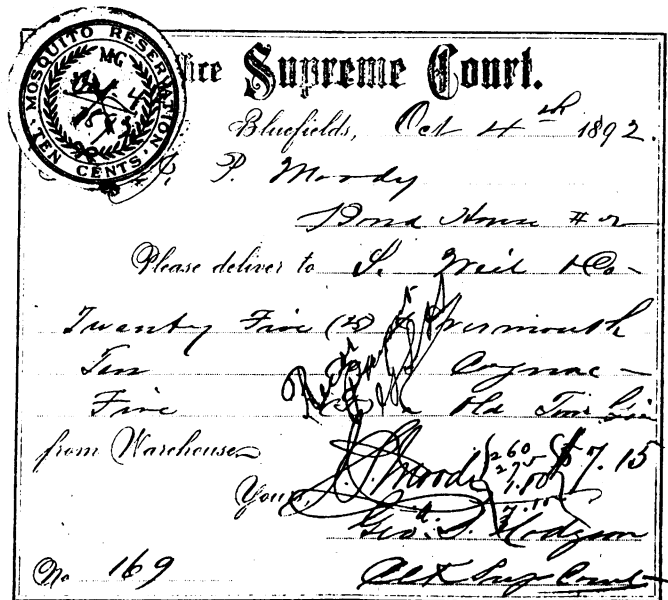 MOSQUITO RESERVATION
TEN CENTS
Supreme Court.
Bluefields, Oct 4th 1892.
P. Moody
Bond House #2
Please deliver to S. Weil & Co
Twenty Five (25) Vermouth
Ten Cognac
Five Old Tom Gin
from Warehouse
Moody 2.60 $7.15
1.80
Yours,
Geo. S. Hodgson
No 169 Clk Sup Court